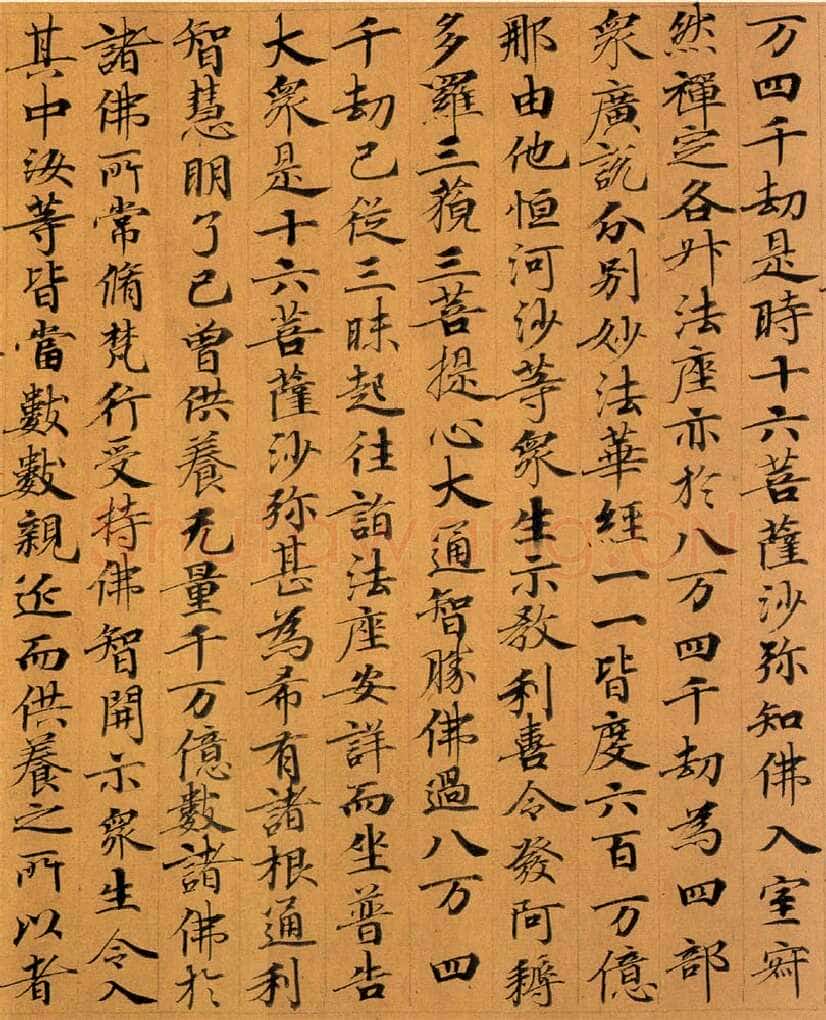 万四千劫是時十六菩薩沙弥知佛入室寂
然禪定各升法座亦於八万四千劫為四部
衆廣説分别妙法華經一一皆度六百万億
那由他恒河沙等衆生示教利喜令發阿耨
多羅三藐三菩提心大通智勝佛過八万四
千劫已從三昧起往詣法座安詳而坐普告
大衆是十六菩薩沙弥甚為希有諸根通利
智慧明了已曾供養无量千万億數諸佛於
諸佛所常脩梵行受持佛智開示衆生令入
其中汝等皆當數數親近而供養之所以者